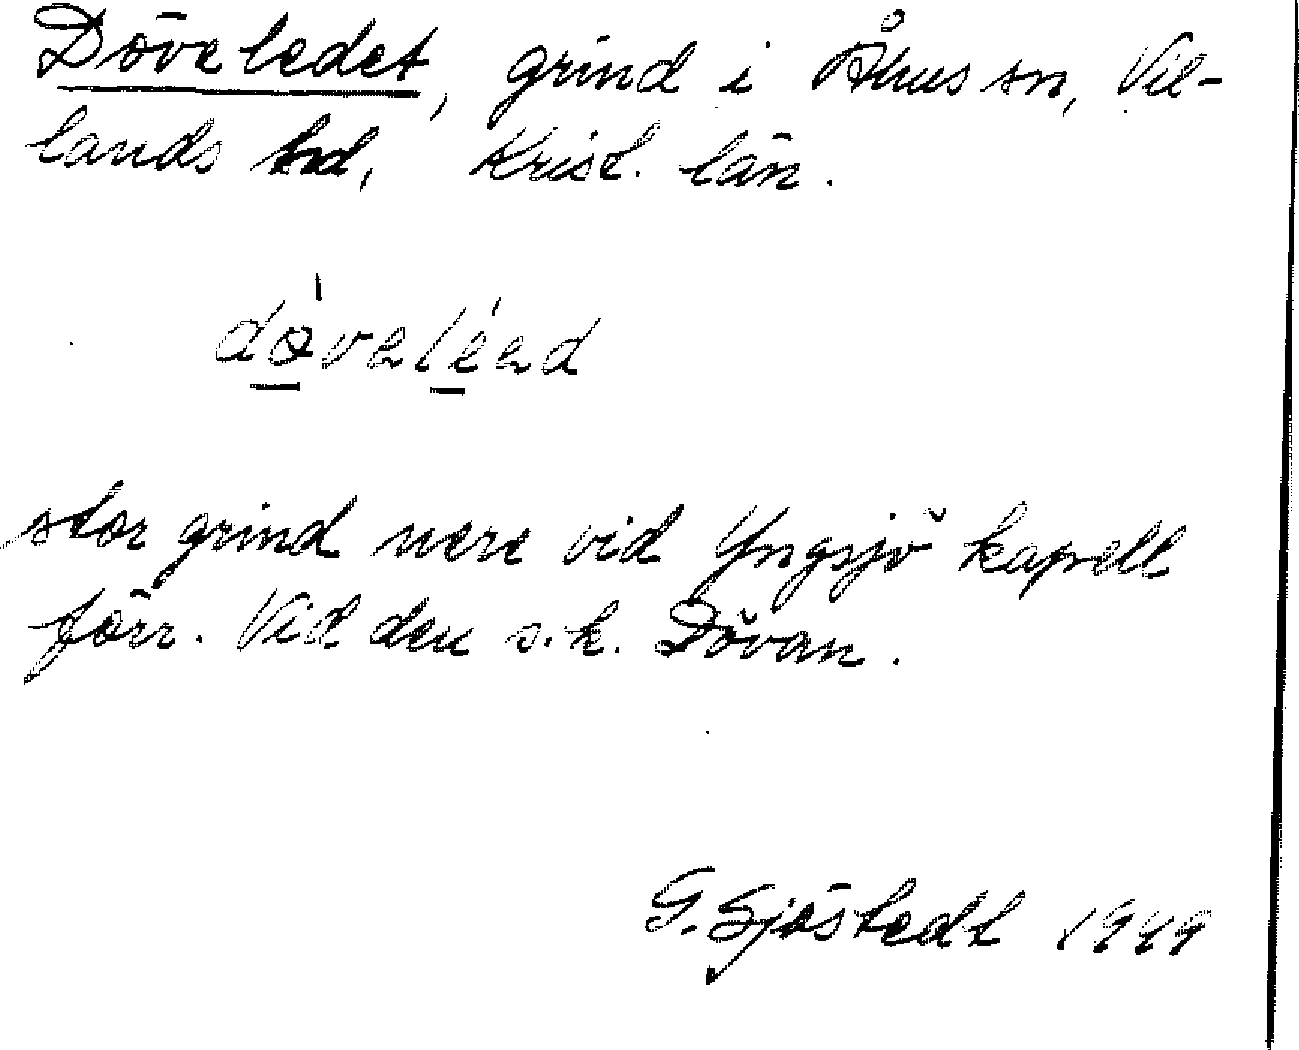 Döveledet, grind i Åhus sn, Vil-
lands hd, Krist. län.
dø̀veléed
stor grind nere vid Yngsjö kapell
förr. Vid den s.k. Dövan.
G. Sjöstedt 1949